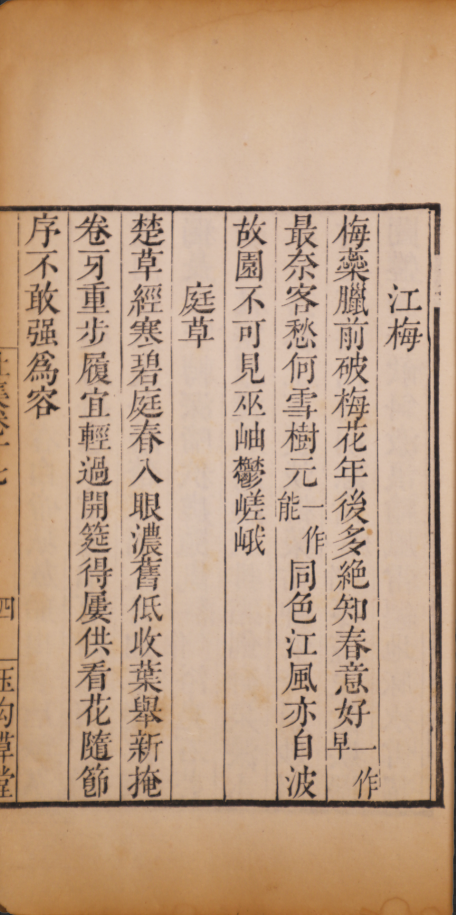 江梅
梅蘂臘前破梅花年後多絶知春意好一作早
最奈客愁何雪樹元一作能同色江風亦自波
故園不可見巫岫鬱嵯峨
庭草
楚草經寒碧庭春入眼濃舊低收葉舉新掩
卷牙重步履宜輕過開筵得屢供看花隨節
序不敢强爲容
四
玉勾草堂